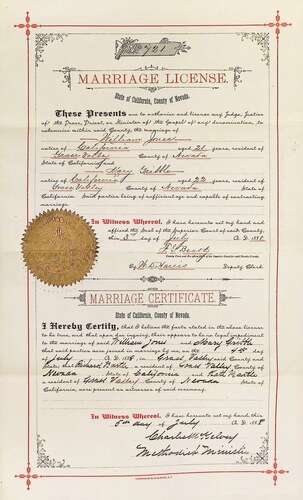 721
MARRIAGE LICENSE.
State of California, County of Nevada.
These Presents are to authorize and license any Judge, Justice
of the Peace, Priest, or Minister of the Gospel of any denomination, to
solemnize within said County, the marriage of
William Jones
native of California aged 21 resident of
Grass Valley County of Nevada
State of California, and
Mary
native of California aged 22 resident of
Grass Valley County of Nevada State of
California. Said parties being of sufficient age and capable of contracting
marriage.
In Witness Whereof, I have hereunto set my hand and
affixed the Seal of the Superior Court of said County,
this 3 day of July A. D. 188
By W. D. Harris Deputy Clerk.
MARRIAGE CERTIFICATE.
State of California, County of Nevada.
I Hereby Certify, that I believe the facts stated in the above license
to be true, and that upon due inquiry, there appears to be no legal impediment
to the marriage of said William Jones and Mary
that said parties were joined in marriage by me, on the 4th day
of July A. D. 188 in Grass Valley said County and
State; that Richard a resident of Grass Valley County of
Nevada State of California and
a resident of Grass Valley County of Nevada State of
California, are present as witnesses of said ceremony.
In Witness Whereof, I have hereunto set my hand, this
5th day of July A. D. 188
Charles McKelvey
Methodist Minister